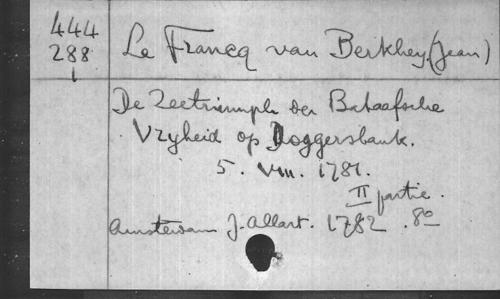 444
288
1
Le Francq van Berkhey (Jean)
De Zeetriumph der Bataafsche
Vryheid op Doggersbank.
5. VIII. 1781.
II partie.
Amsterdam J. Allart. 1782. 8º